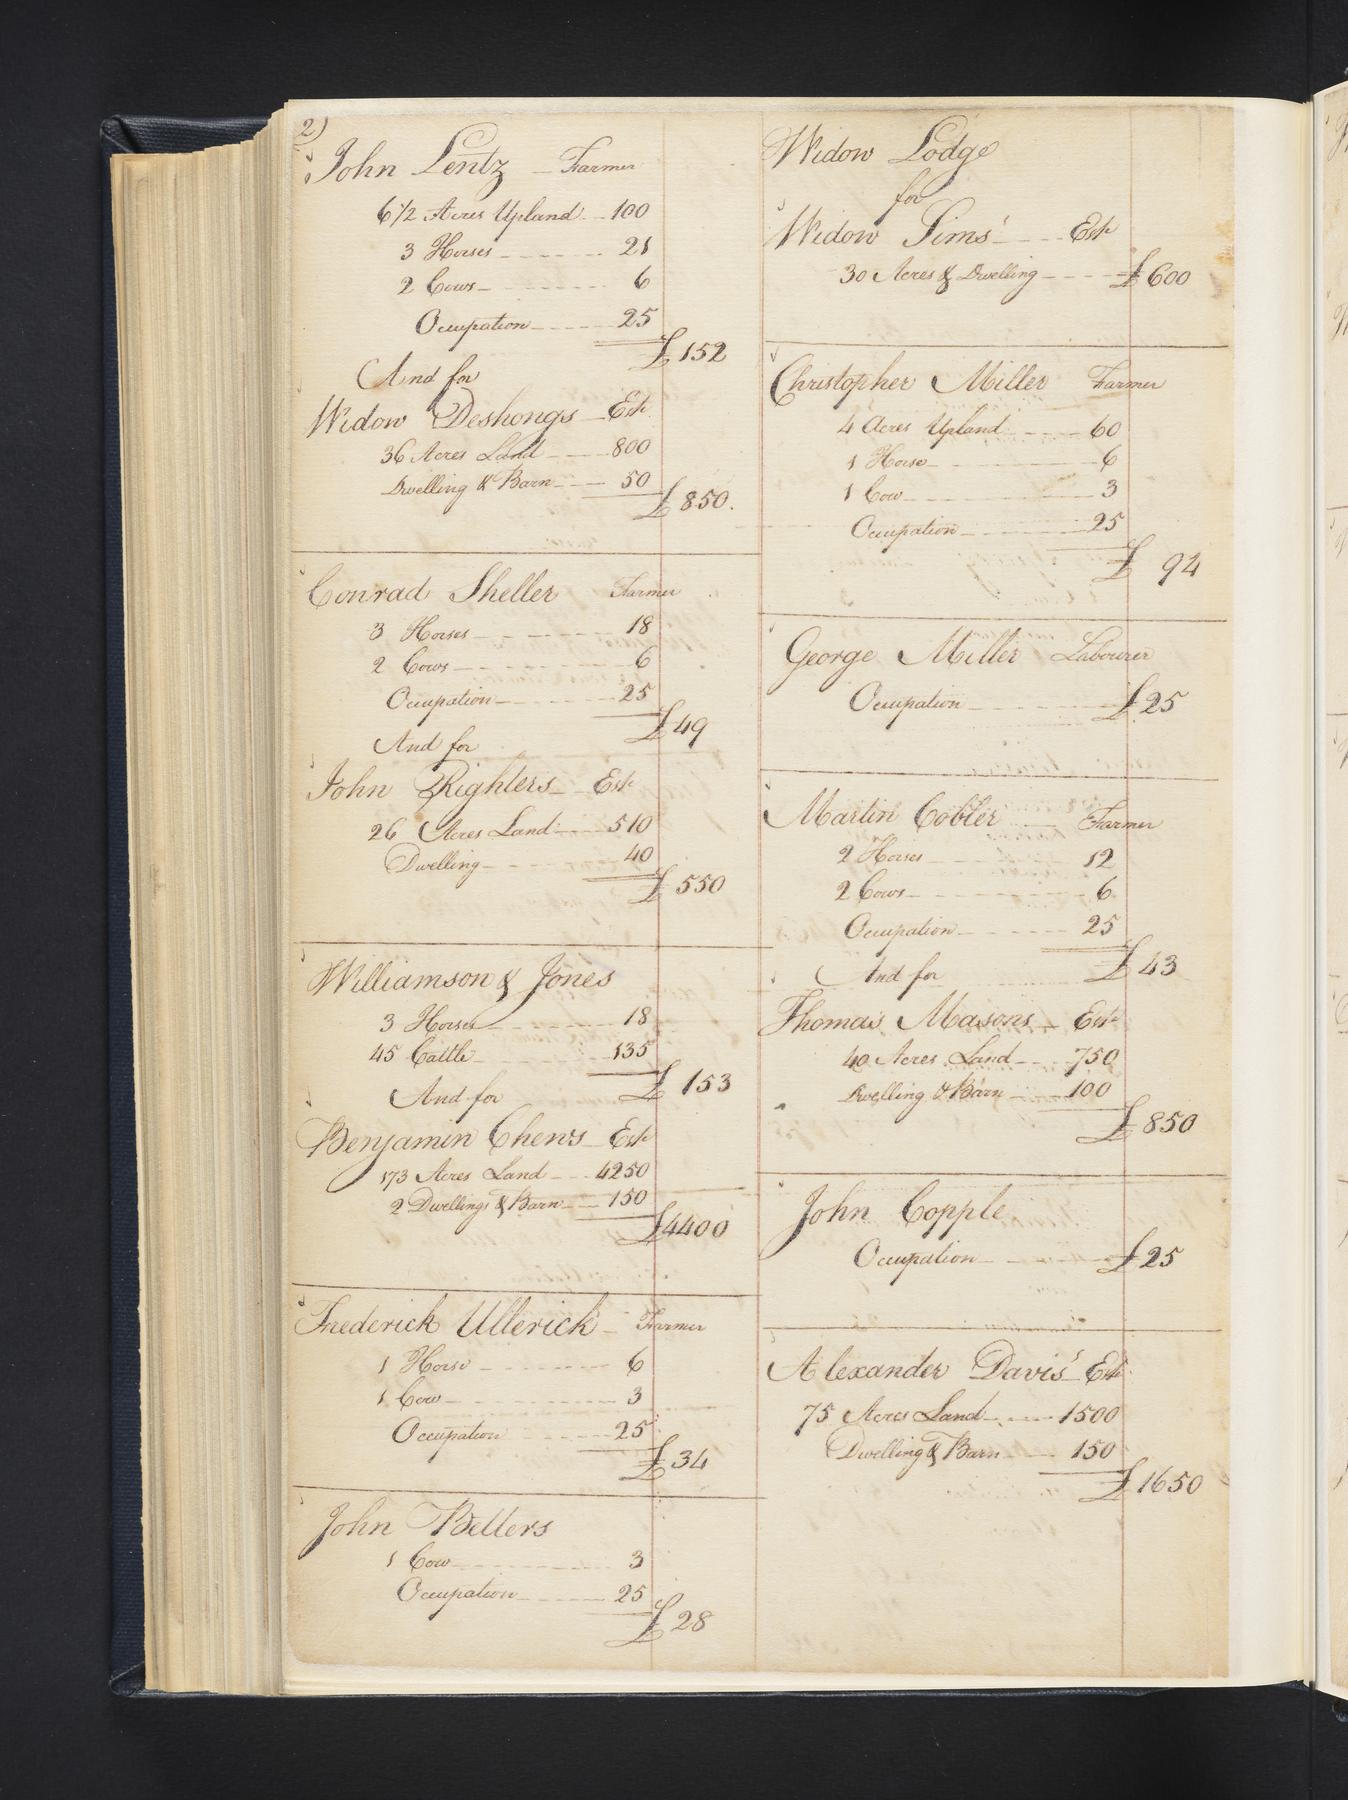 2)
John Lentz - Farmer
6 1/2 Acres Upland 100
3 Horses 21
2 Cows 6
Occupation 25
£152
And for
Widow Deshongs Est.
36 Acres Land 800
Dwelling & Barn 50
£850.
Conrad Sheller Farmer
3 Horses 18
2 Cows 6
Occupation 25
£49
And for
John Righters Est.
26 Acres Land 510
Dwelling 40
£550
Williamson & Jones
3 Horses 18
45 Cattle 135
£153
And for
Benjamin Chews Est.
173 Acres Land 4250
2 Dwellings & Barn 150
£4400
Frederick Ullerick Farmer
1 Horse 6
1 Cow 3
Occupation 25
£34
John Betters
1 Cow 3
Occupation 25
£28
Widow Lodge
for
Widow Sims' Est.
30 Acres & Dwelling £600
Christopher Miller Farmer
4 Acres Upland 60
1 Horse 6
1 Cow 3
Occupation 25
£94
George Miller Labourer
Occupation £25
Martin Cobler Farmer
2 Horses 12
2 Cows 6
Occupation 25
£43
And for
Thomas Masons Est.
40 Acres Land 750
Dwelling & Barn 100
£850
John Copple
Occupation £25
Alexander Davis' Est.
75 Acres Land 1500
Dwelling & Barn 150
£1650